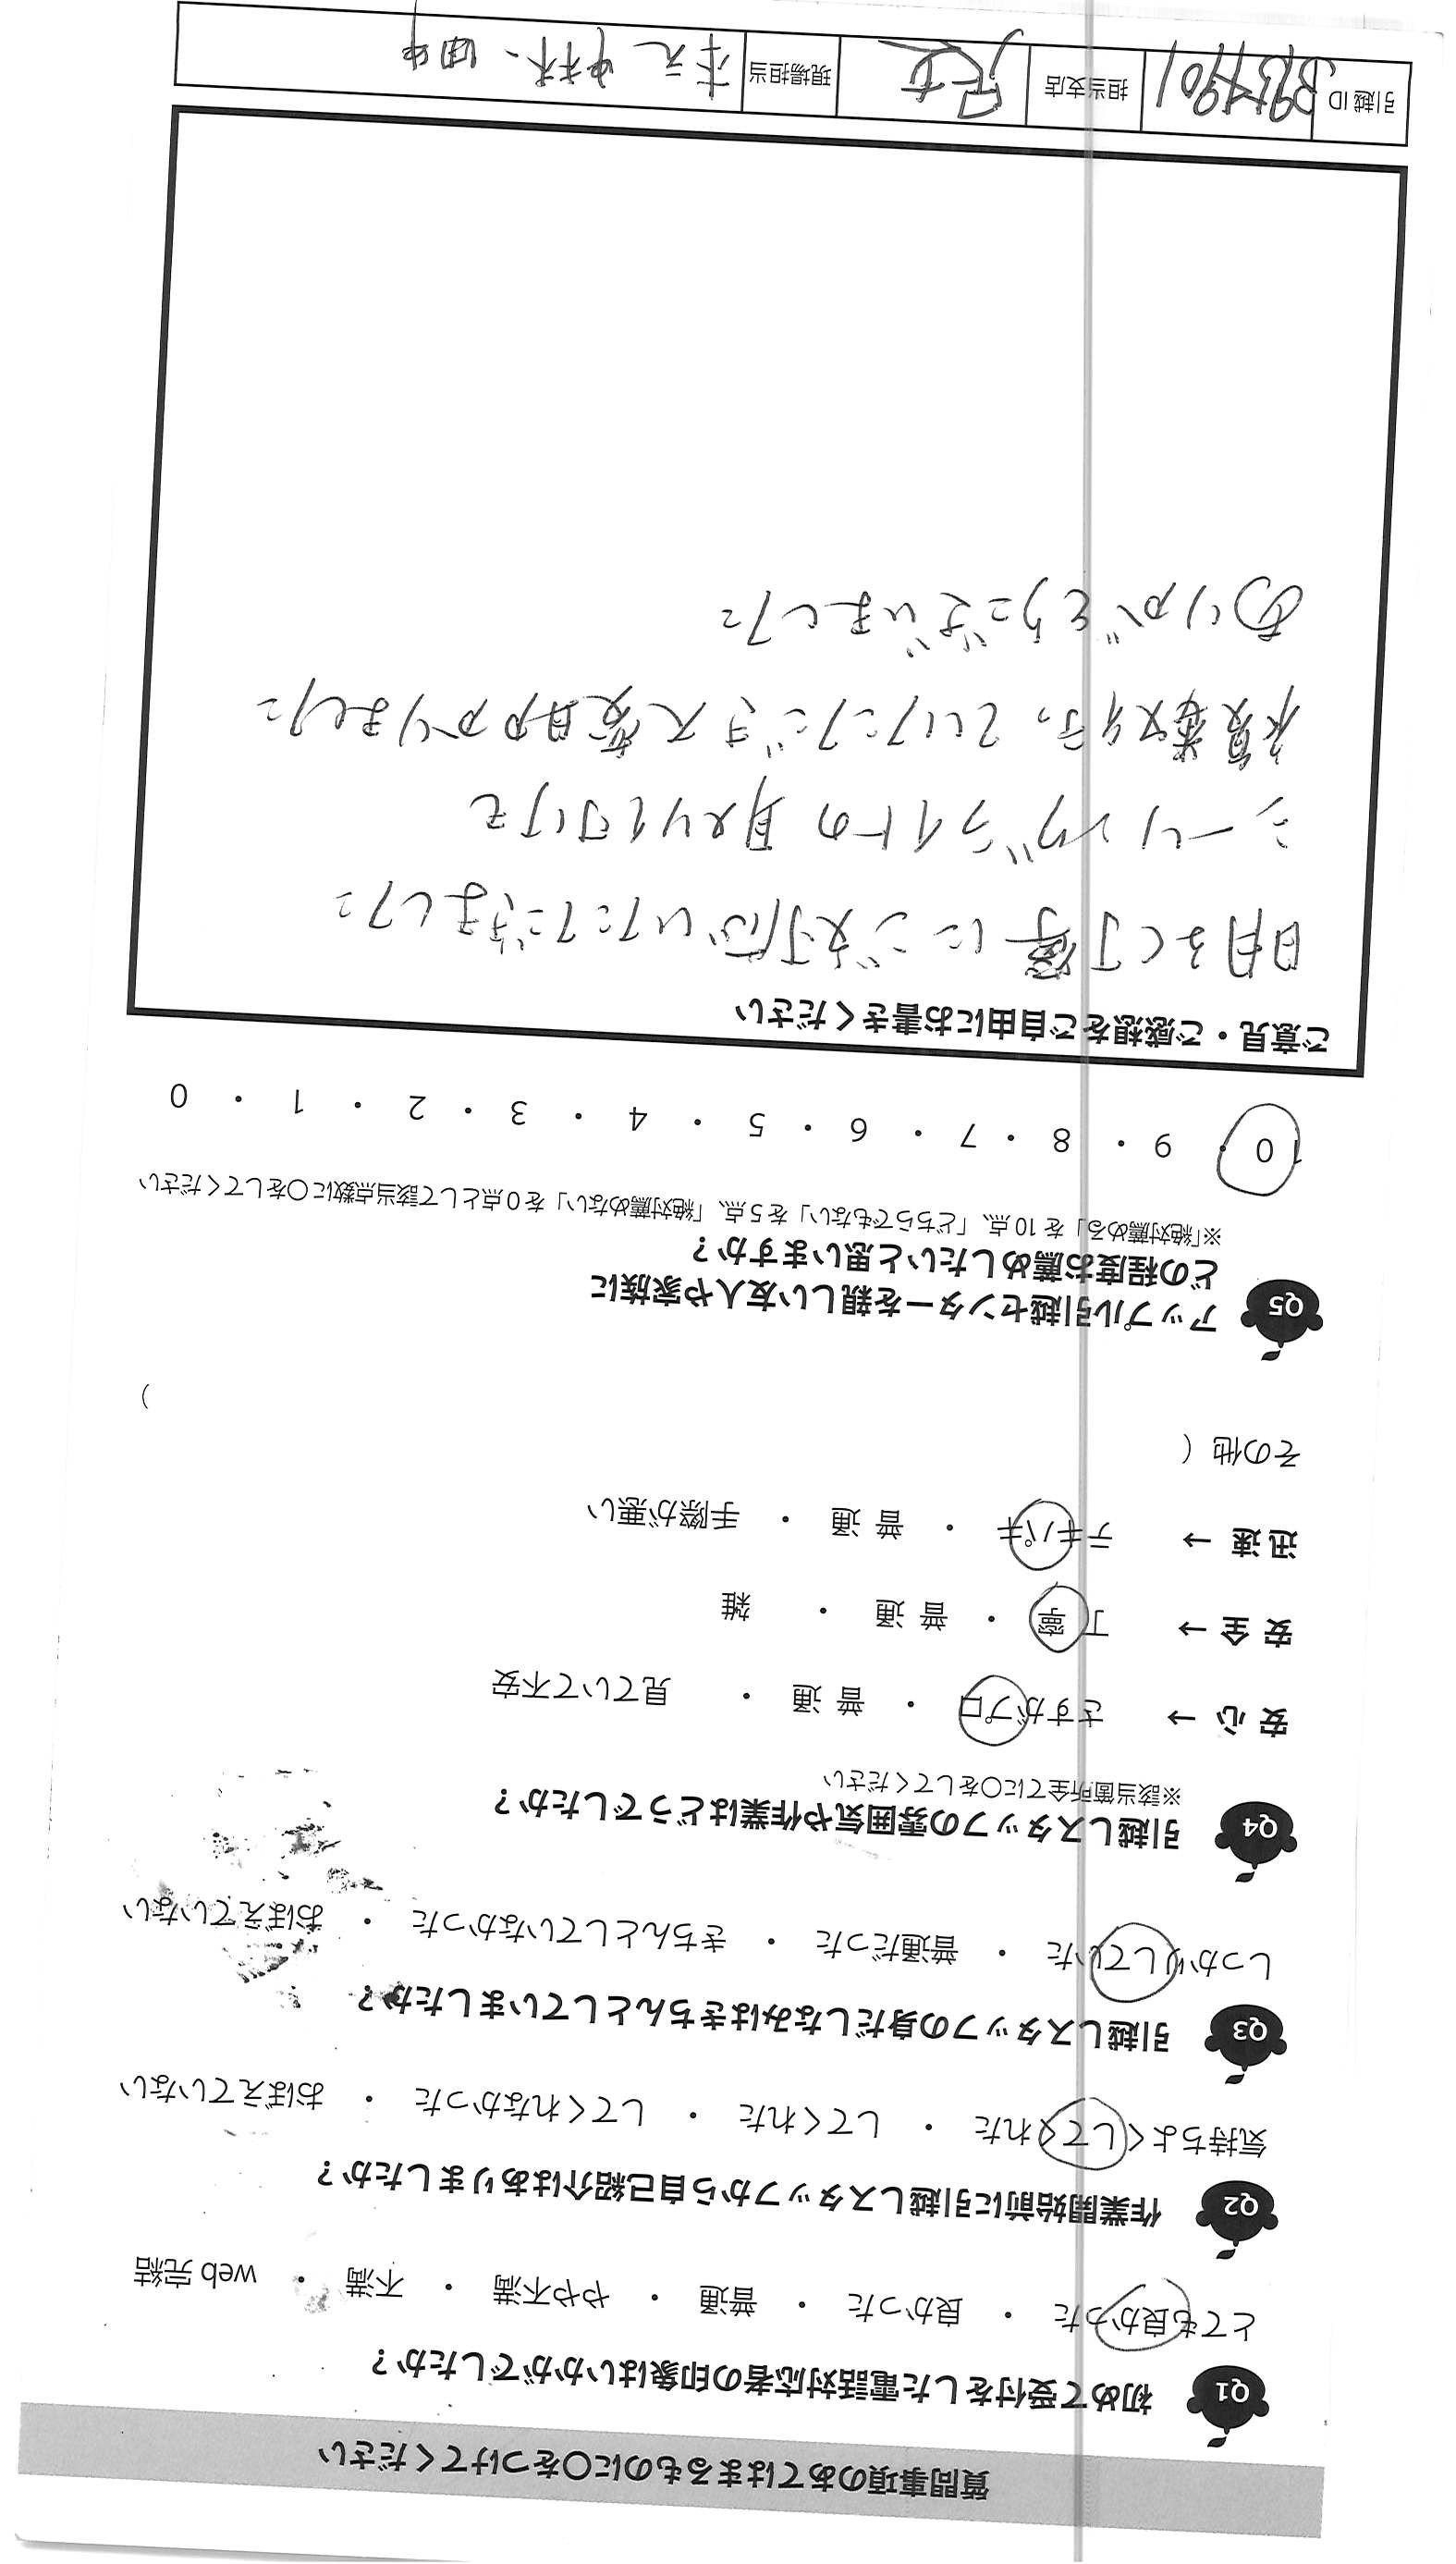 質問事項のあてはまるものに〇をつけてください
Q1 初めて受付をした電話対応者の印象はいかがでしたか？
とても良かった ・ 良かった ・ 普通 ・ やや不満 ・ 不満 ・ web 完結
Q2 作業開始前に引越しスタッフから自己紹介はありましたか？
気持ちよくしてくれた ・ してくれた ・ してくれなかった ・ おぼえていない
Q3 引越しスタッフの身だしなみはきちんとしていましたか？
しっかりしていた ・ 普通だった ・ きちんとしていなかった ・ おぼえていない
Q4 引越しスタッフの雰囲気や作業はどうでしたか？
※該当箇所全てに〇をしてください
安 心 → さすがプロ ・ 普 通 ・ 見ていて不安
安 全 → 丁 寧 ・ 普 通 ・ 雑
迅 速 → テキパキ ・ 普 通 ・ 手際が悪い
その他（ ）
Q5 アップル引越センターを親しい友人や家族に
どの程度お薦めしたいと思いますか？
※「絶対薦める」を 10 点、「どちらでもない」を 5 点、「絶対薦めない」を 0 点として該当点数に〇をしてください
10 ・ 9 ・ 8 ・ 7 ・ 6 ・ 5 ・ 4 ・ 3 ・ 2 ・ 1 ・ 0
ご意見・ご感想をご自由にお書きください
明るく丁寧にご対応いただきました
シーリングライトの取り付けも
ていただき大変助かりました
ありがとうございました
引越 ID 担当支店 足立 現場担当 中林、田中